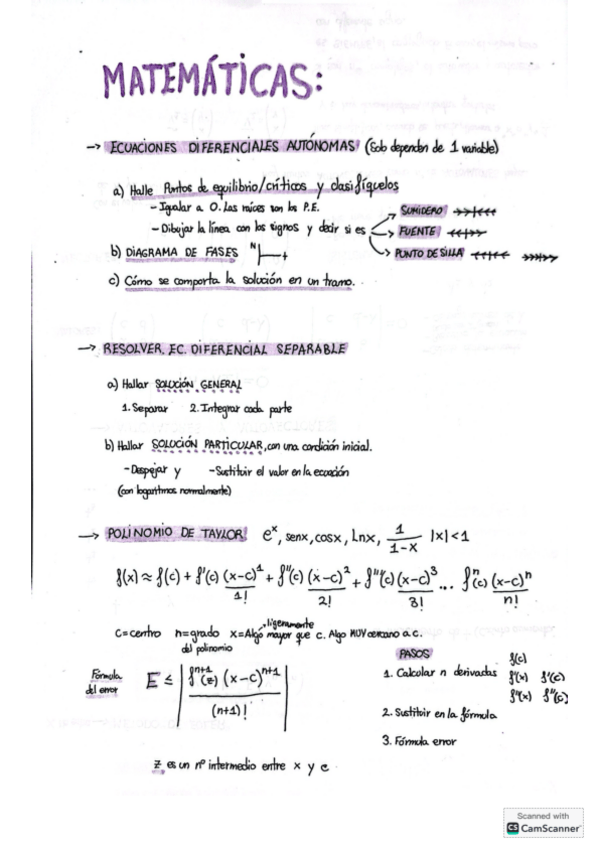 MATEMÁTICAS:
→ ECUACIONES DIFERENCIALES AUTÓNOMAS (Solo dependen de 1 variable)
a) Halle Puntos de equilibrio/críticos y clasifíquelos
- Igualar a 0. Las raíces son los P.E.
- Dibujar la línea con los signos y decir si es
SUMIDERO →→←←
FUENTE ←←→→
PUNTO DE SILLA ←←←← →→→→
b) DIAGRAMA DE FASES N
c) Cómo se comporta la solución en un tramo.
→ RESOLVER. EC. DIFERENCIAL SEPARABLE
a) Hallar SOLUCIÓN GENERAL
1. Separar 2. Integrar cada parte
b) Hallar SOLUCIÓN PARTICULAR, con una condición inicial.
- Despejar y - Sustituir el valor en la ecuación
(con logaritmos normalmente)
→ POLINOMIO DE TAYLOR e^x, senx, cosx, Lnx, 1/(1-x) |x|<1
f(x) ≈ f(c) + f'(c) (x-c)^1/1! + f''(c) (x-c)^2/2! + f'''(c) (x-c)^3/3! ... f^n(c) (x-c)^n/n!
c=centro n=grado del polinomio x=Algo ligeramente mayor que c. Algo MUY cercano a c.
Fórmula del error E ≤ |f^(n+1)(z) (x-c)^(n+1)/(n+1)!|
z es un nº intermedio entre x y c
PASOS
f(c)
1. Calcular n derivadas f'(x) f'(c)
f''(x) f''(c)
2. Sustituir en la fórmula
3. Fórmula error
Scanned with
CS CamScanner